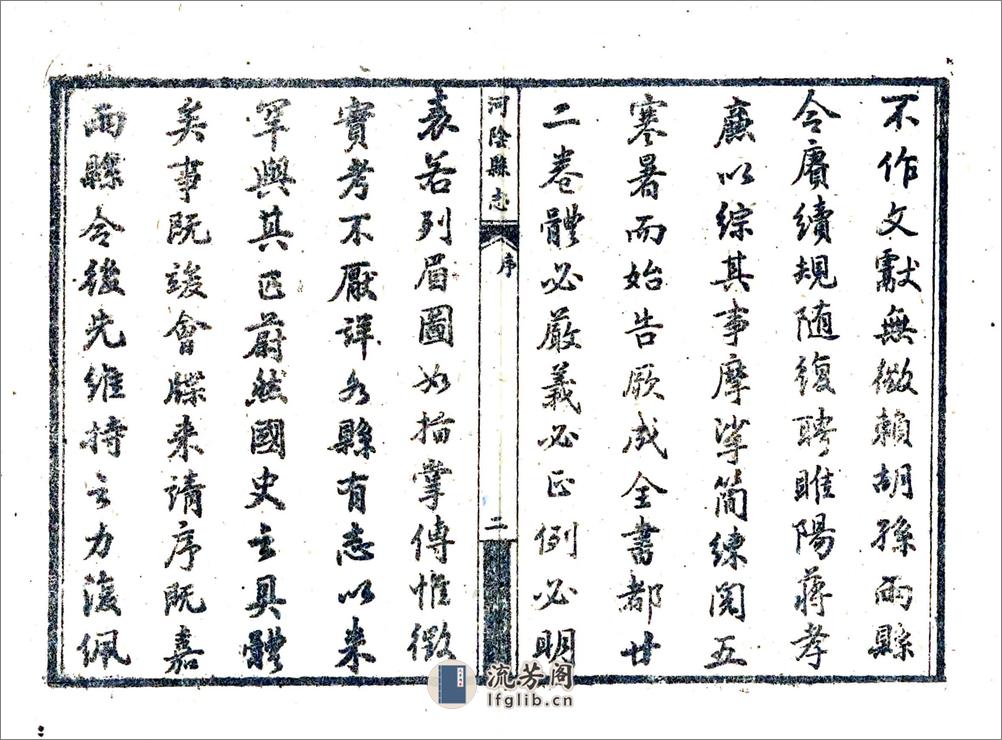 不作文獻無徵賴胡孫兩縣
令賡續規随復聘睢陽蔣孝
廉以綜其事摩挲簡練閱五
寒暑而始告厥成全書都廿
二卷體必嚴義必正例必明
河陰縣志
序
二
表若列眉圖如指掌傳惟徵
實考不厭詳為縣有志以来
罕與其匹蔚然國史之具體
矣事既竣會牒来請序既嘉
兩縣令後先維持之力復佩
流芳阁
lfglib.cn